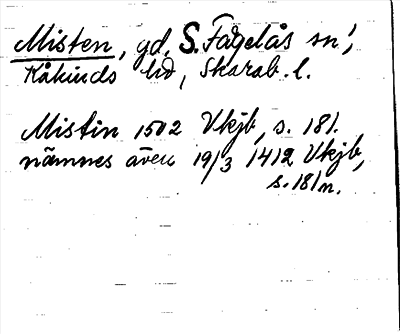 Misten, gd, S. Fågelås sn,
Kåkinds hd, Skarab. l.
Mistin 1502 Vkjb, s. 181.
nämnes även 19/3 1412 Vkjb,
s. 181 n.